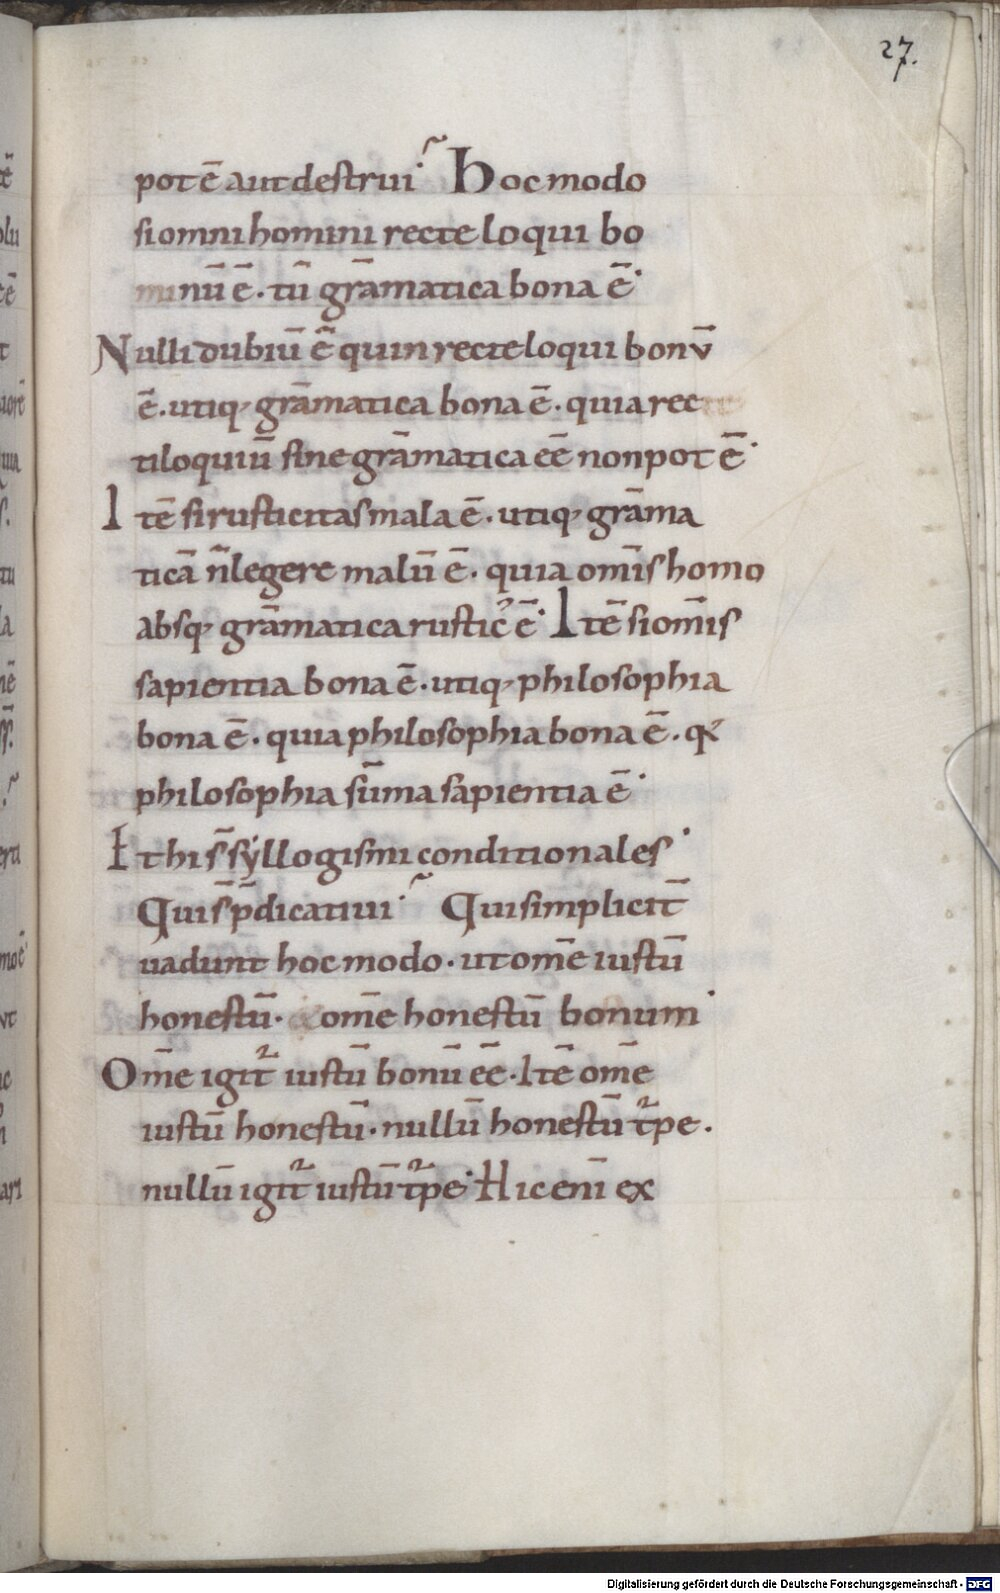 27.
potē aut destrui· hoc modo
si omni homini recte loqui bo
minū ē. tū grāmatica bona ē·
Nulli dubiū ē quin recte loqui bonū
ē. utiq; grāmatica bona ē. quia rec
tiloquiū sine grāmatica eē non potē·
Itē si rusticitas mala ē. utiq; grāma
ticā n̄ legere malū ē. quia om̄is homo
absq; grāmatica rustic᾽ ē· Itē si om̄is
sapientia bona ē. utiq; philosophia
bona ē. quia philosophia bona ē. q᷎
philosophia sūma sapientia ē·
Et hi s̄ syllogismi conditionales·
Qui s̄ p̄dicativi· Qui simplicit̄
vadunt hoc modo. ut om̄e iustū
honestū. om̄e honestū bonum·
Om̄e igit̄ iustū bonū eē. Itē om̄e
iustū honestū. nullū honestū t̄pe.
nullū igit̄ iustū t̄pe· Hic eni̅ ex
Digitalisierung gefördert durch die Deutsche Forschungsgemeinschaft - DFG